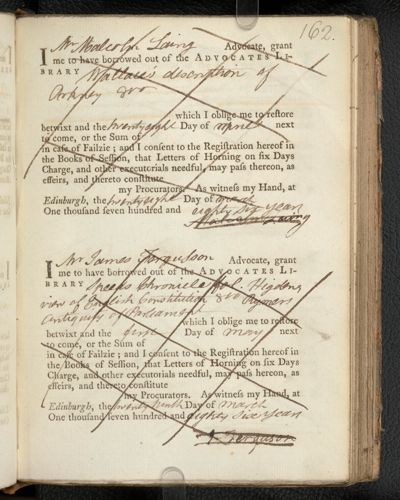 162.
I Mr Malcolm Laing Advocate, grant
me to have borrowed out of the ADVOCATES LI-
BRARY Wallace's description of
Orkney 8vo
which I oblige me to reſtore
betwixt and the twenty eight Day of March next
to come, or the Sum of
in caſe of Failzie ; and I conſent to the Regiſtration hereof in
the Books of Seſſion, that Letters of Horning on ſix Days
Charge, and other executorials needful, may paſs thereon, as
effeirs, and thereto conſtitute
my Procurators. As witneſs my Hand, at
Edinburgh, the twenty eight Day of March
One thouſand ſeven hundred and eighty six years
Malcolm Laing
I Mr James Fergusson Advocate, grant
me to have borrowed out of the ADVOCATES LI-
BRARY Speeds Chronicle fol: Higdens
view of English Constitution 8vo Rymers
antiquity of Parliament
which I oblige me to reſtore
betwixt and the Day of May next
to come, or the Sum of
in caſe of Failzie ; and I conſent to the Regiſtration hereof in
the Books of Seſſion, that Letters of Horning on ſix Days
Charge, and other executorials needful, may paſs hereon, as
effeirs, and thereto conſtitute
my Procurators. As witneſs my Hand, at
Edinburgh, the twenty ninth Day of March
One thouſand ſeven hundred and eighty six years
J Ferguson